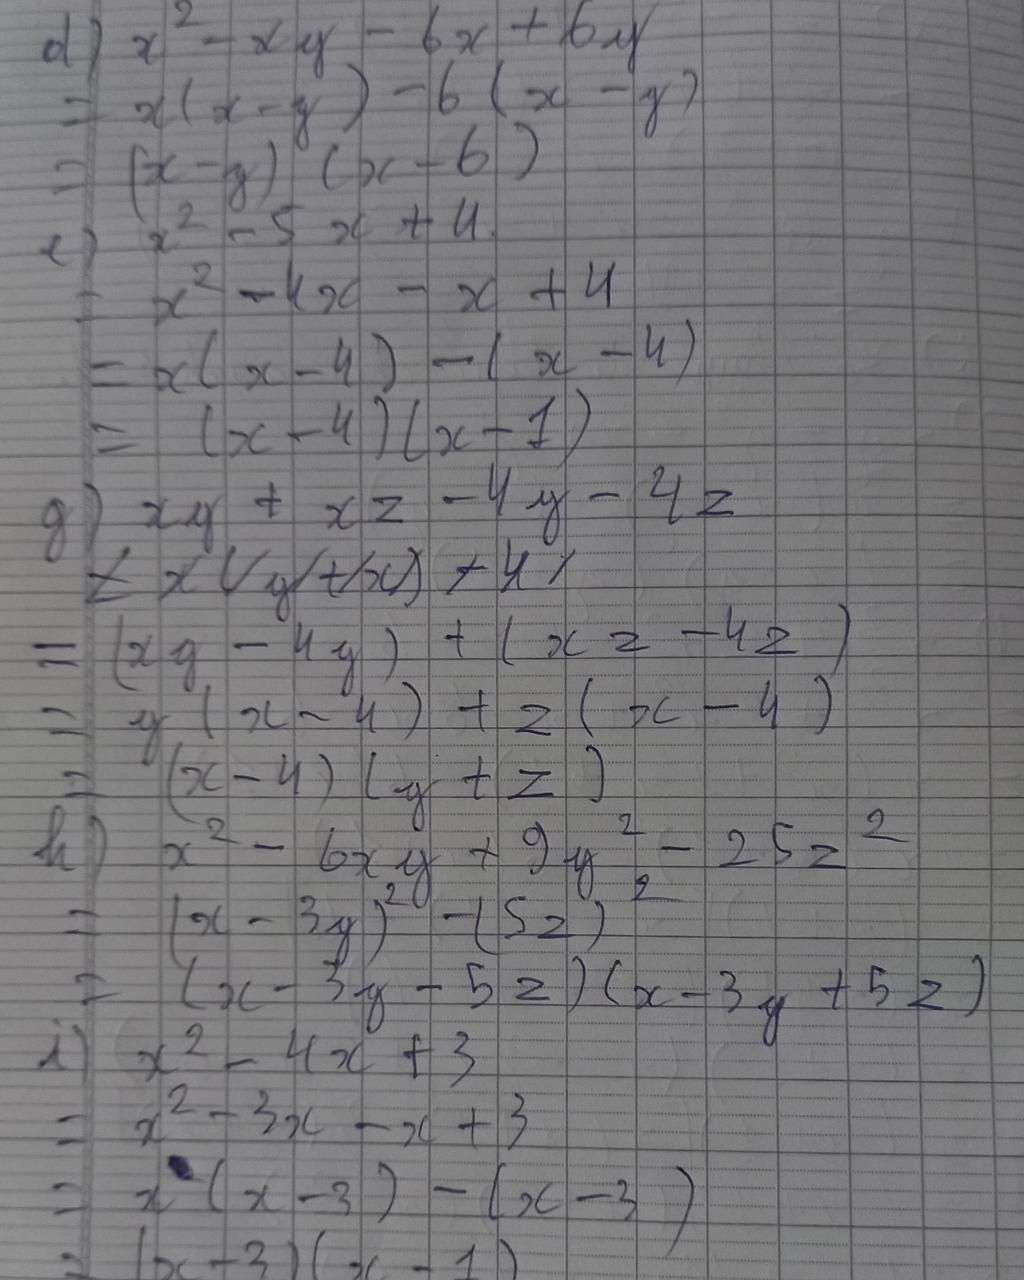 d) x² - xy - 6x + 6y
= x(x - y) - 6(x - y)
= (x - y)(x - 6)
e) x² - 5x + 4
= x² - 4x - x + 4
= x(x - 4) - (x - 4)
= (x - 4)(x - 1)
g) xy + xz - 4y - 4z
= x(y + x) + 4
= (xy - 4y) + (xz - 4z)
= y(x - 4) + z(x - 4)
= (x - 4)(y + z)
h) x² - 6xy + 9y² - 25z²
= (x - 3y)² - (5z)²
= (x - 3y - 5z)(x - 3y + 5z)
i) x² - 4x + 3
= x² - 3x - x + 3
= x(x - 3) - (x - 3)
= (x - 3)(x - 1)